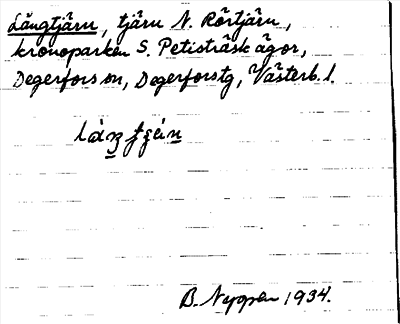 Långtjärn, tjärn N. Rörtjärn,
kronoparken S. Petisträsk ägor,
Degerfors sn, Degerforstg, Västerb. l.
B. Nyppen 1934.